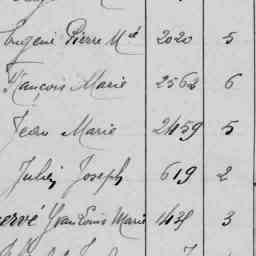 Eugène Pierre Mie 2020 5
François Marie 2562 6
Jean Marie 2459 5
Julien Joseph 619 2
Hervé Yvan Louis Marie 3